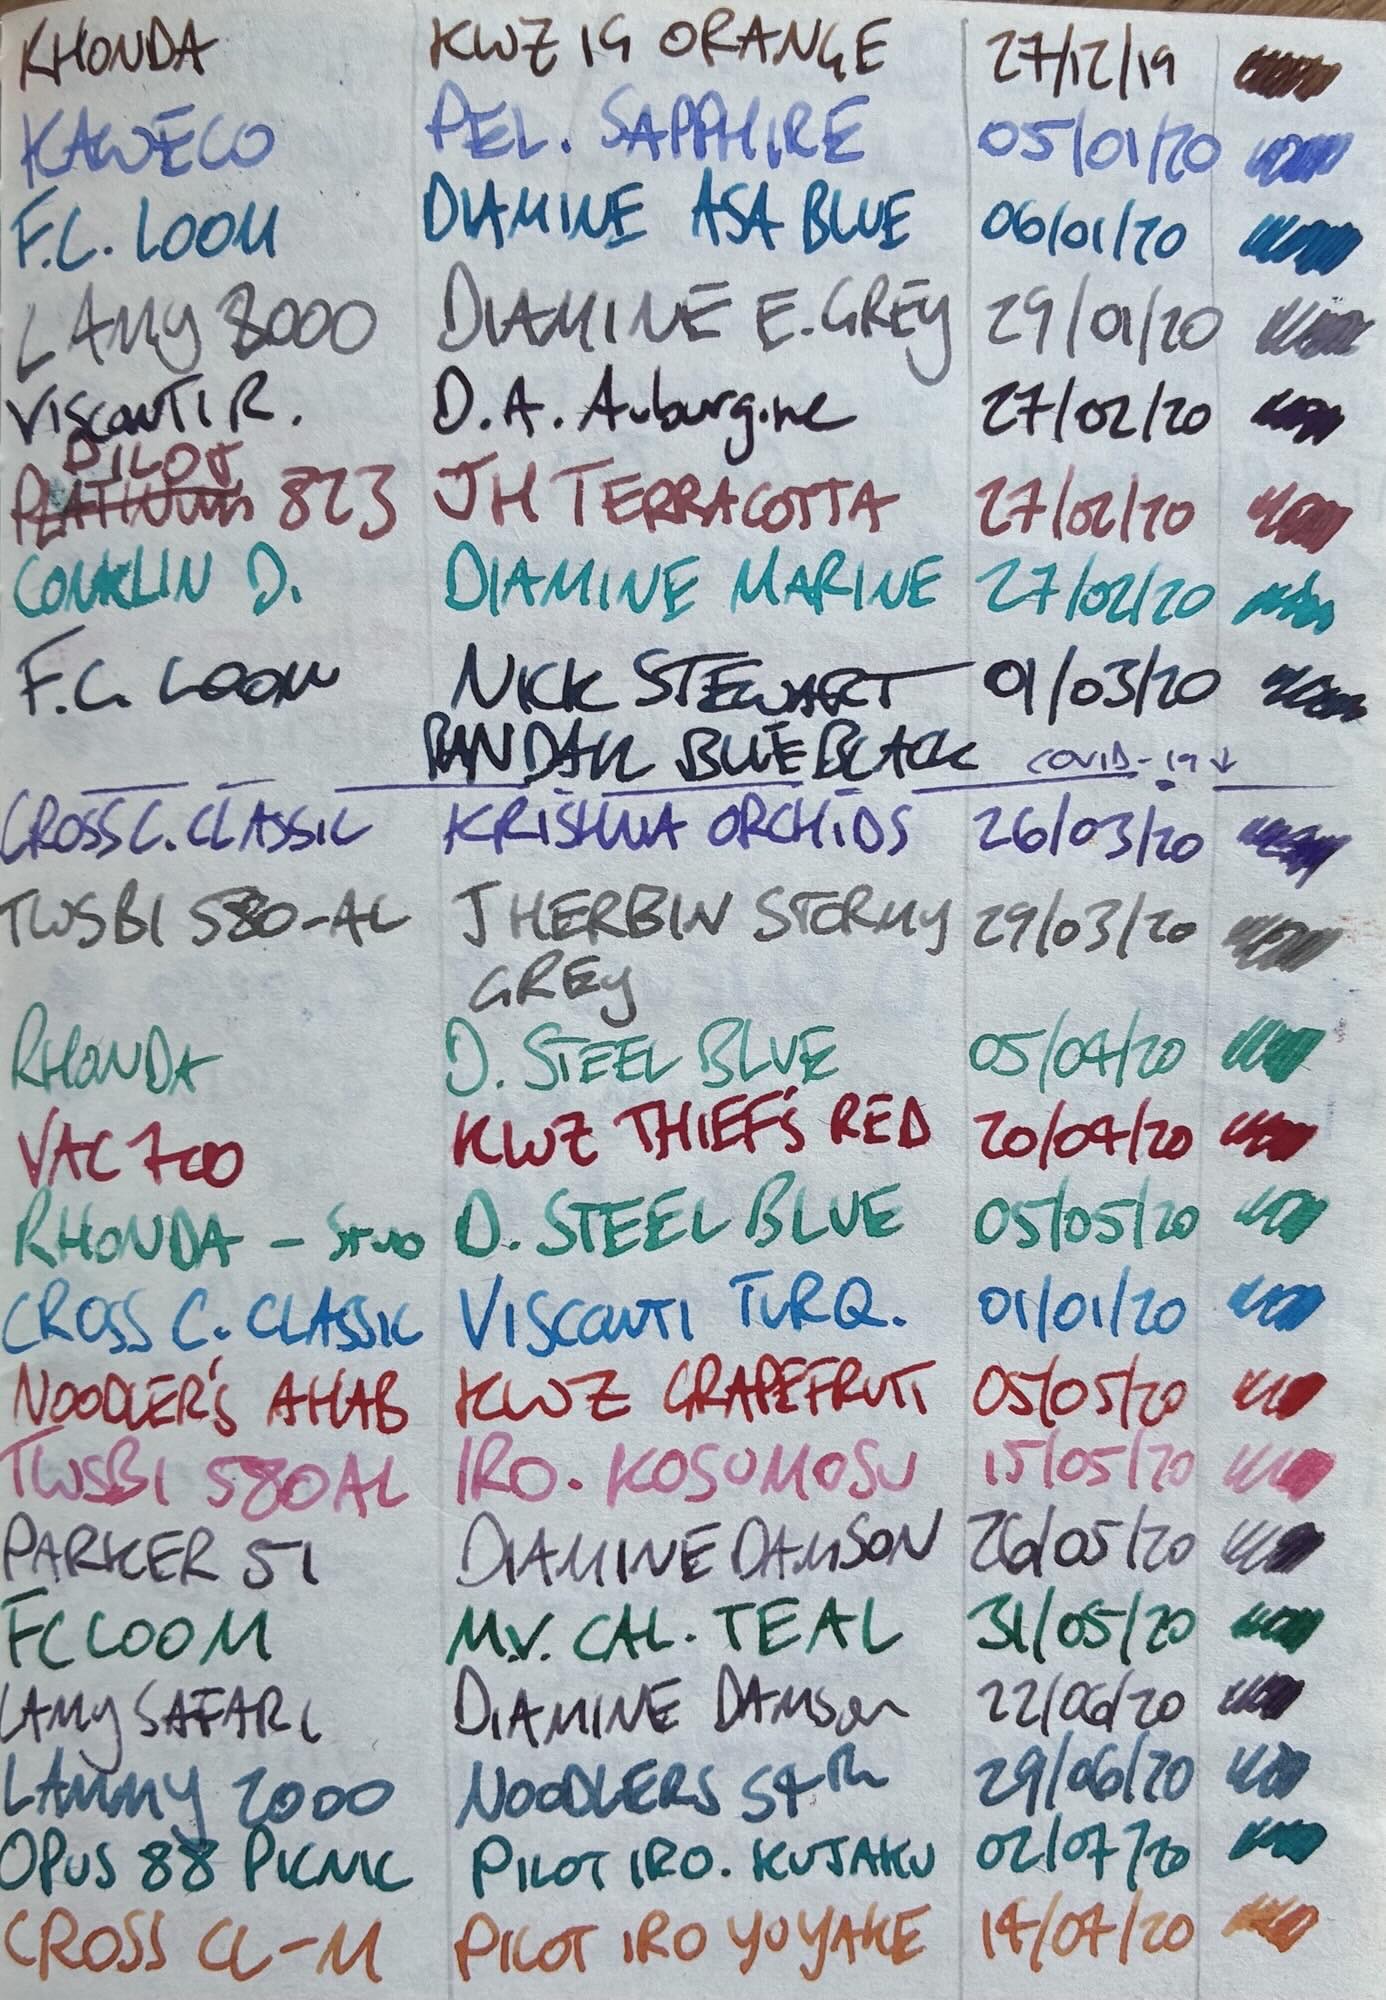 RHONDA KWZ IG ORANGE 27/12/19
KAWECO PEL. SAPPHIRE 05/01/20
F.C. LOOM DIAMINE ASA BLUE 06/01/20
LAMY 2000 DIAMINE E.GREY 29/01/20
VISCONTI R. D.A. Auburgine 27/02/20
PILOT
PLATINUM 823 JH TERRACOTTA 27/02/20
CONKLIN D. DIAMINE MARINE 27/02/20
F.C. LOOM NICK STEWART 01/03/20
RANDALL BLUE BLACK COVID-19 ↓
CROSS C. CLASSIC KRISHNA ORCHIDS 26/03/20
TWSBI 580-AL J HERBIN STORMY 29/03/20
GREY
RHONDA D. STEEL BLUE 05/04/20
VAC 700 KWZ THIEF'S RED 20/04/20
RHONDA - D. STEEL BLUE 05/05/20
CROSS C. CLASSIC VISCONTI TURQ. 01/01/20
NOODLER'S AHAB KWZ GRAPEFRUTI 05/05/20
TWSBI 580AL IRO. KOSUMOSU 15/05/20
PARKER 51 DIAMINE DAMSON 26/05/20
FC LOOM M.V. CAL. TEAL 31/05/20
LAMY SAFARI DIAMINE DAMSON 22/06/20
LAMMY 2000 NOODLERS 54th 29/06/20
OPUS 88 PICNIC PILOT IRO. KUJAKU 02/07/20
CROSS CL-M PILOT IRO YUYAKE 14/07/20